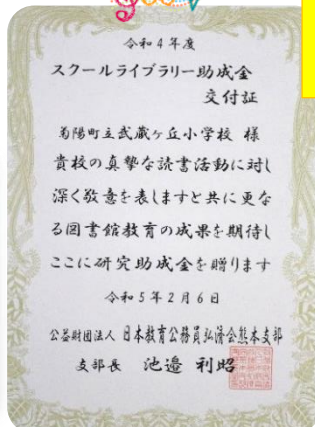 令和4年度
スクールライブラリー助成金
交付証
菊陽町立武蔵ヶ丘小学校 様
貴校の真摯な読書活動に対し
深く敬意を表しますと共に更な
る図書館教育の成果を期待し
ここに研究助成金を贈ります
令和5年2月6日
公益財団法人 日本教育公務員弘済会熊本支部
支部長 池邉 利昭